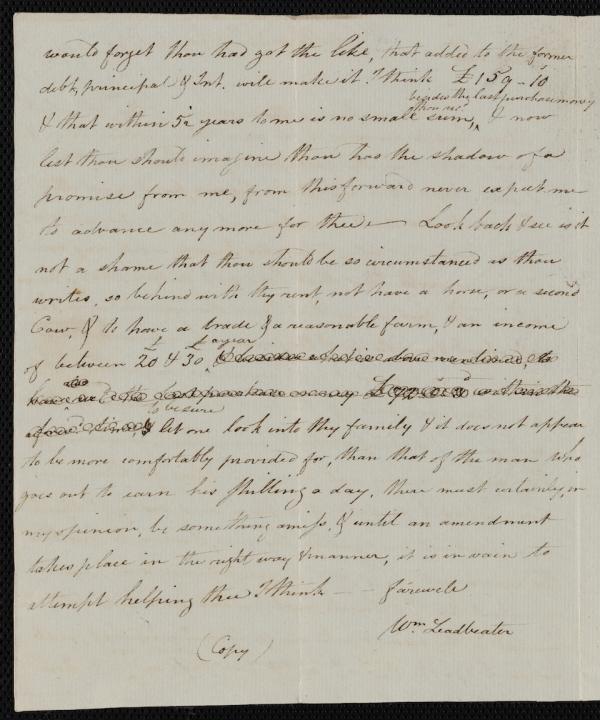 would forget thou had got the like, that added to the former
debt, principal & Int. will make it I think £159-10
besides the last purchase money
& that within 5½ years to me is no small sum, & now
lest thou should imagine thou has the shadow of a
promise from me, from this forward never expect me
to advance any more for thee — Look back & see is it
not a shame that thou should be so circumstanced as thou
writes, so behind with thy rent, not have a horse, or a second
Cow, & to have a trade & a reasonable farm, & an income
of between £20 & £30 a year, besides what is above mentioned, to
have had the last purchase money
to be sure
& let one look into thy family & it does not appear
to be more comfortably provided for, than that of the man who
goes out to earn his shilling a day, there must certainly, in
my opinion, be something amiss, & until an amendment
takes place in the right way & manner, it is in vain to
attempt helping thee I think — farewell
Wm. Leadbeater
(Copy)